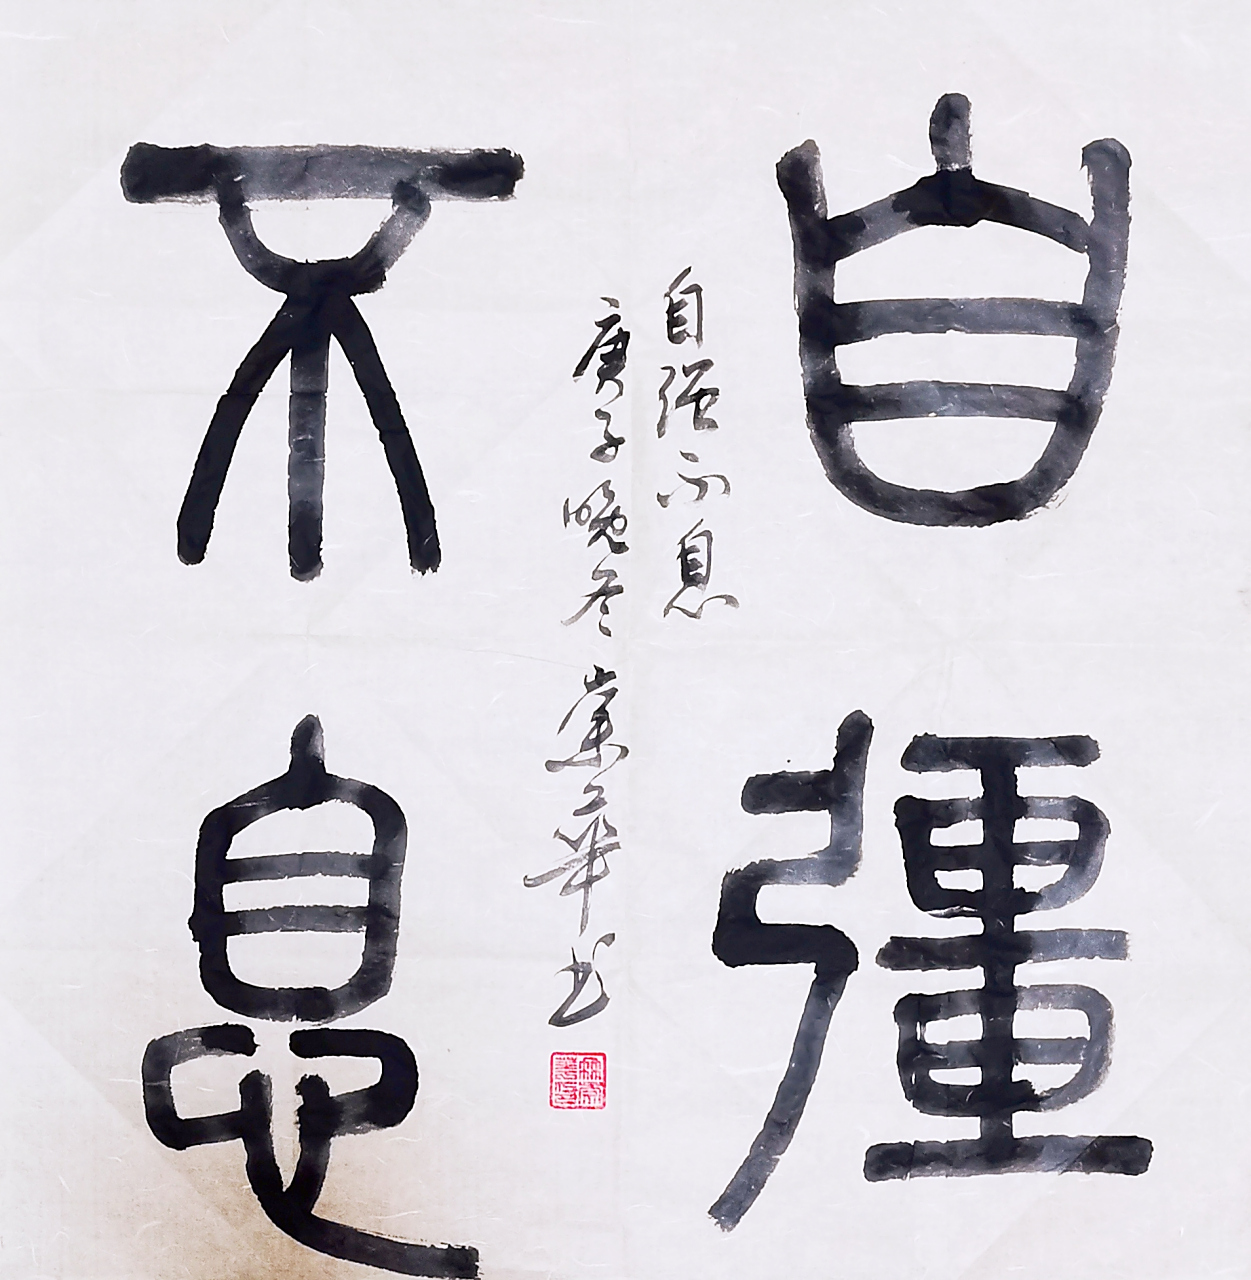 自彊
不息
自强不息
庚子晚冬業華书